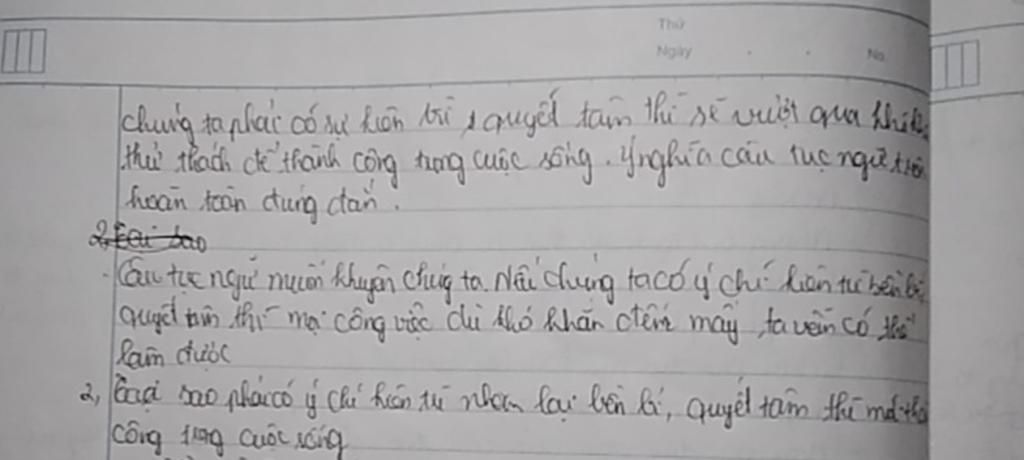 Thứ
Ngày . . No
chúng ta phải có sự kiên trì, quyết tâm thì sẽ vượt qua khó khăn
thử thách để thành công trong cuộc sống. Ý nghĩa câu tục ngữ trên
hoàn toàn đúng đắn.
2, Tại sao
- Câu tục ngữ muốn khuyên chúng ta. Nếu chúng ta có ý chí kiên trì bền bỉ
quyết tâm thì mọi công việc dù khó khăn đến mấy, ta vẫn có thể
làm được
2, Tại sao phải có ý chí kiên trì nhẫn lại bền bỉ, quyết tâm thì mới
công trong cuộc sống